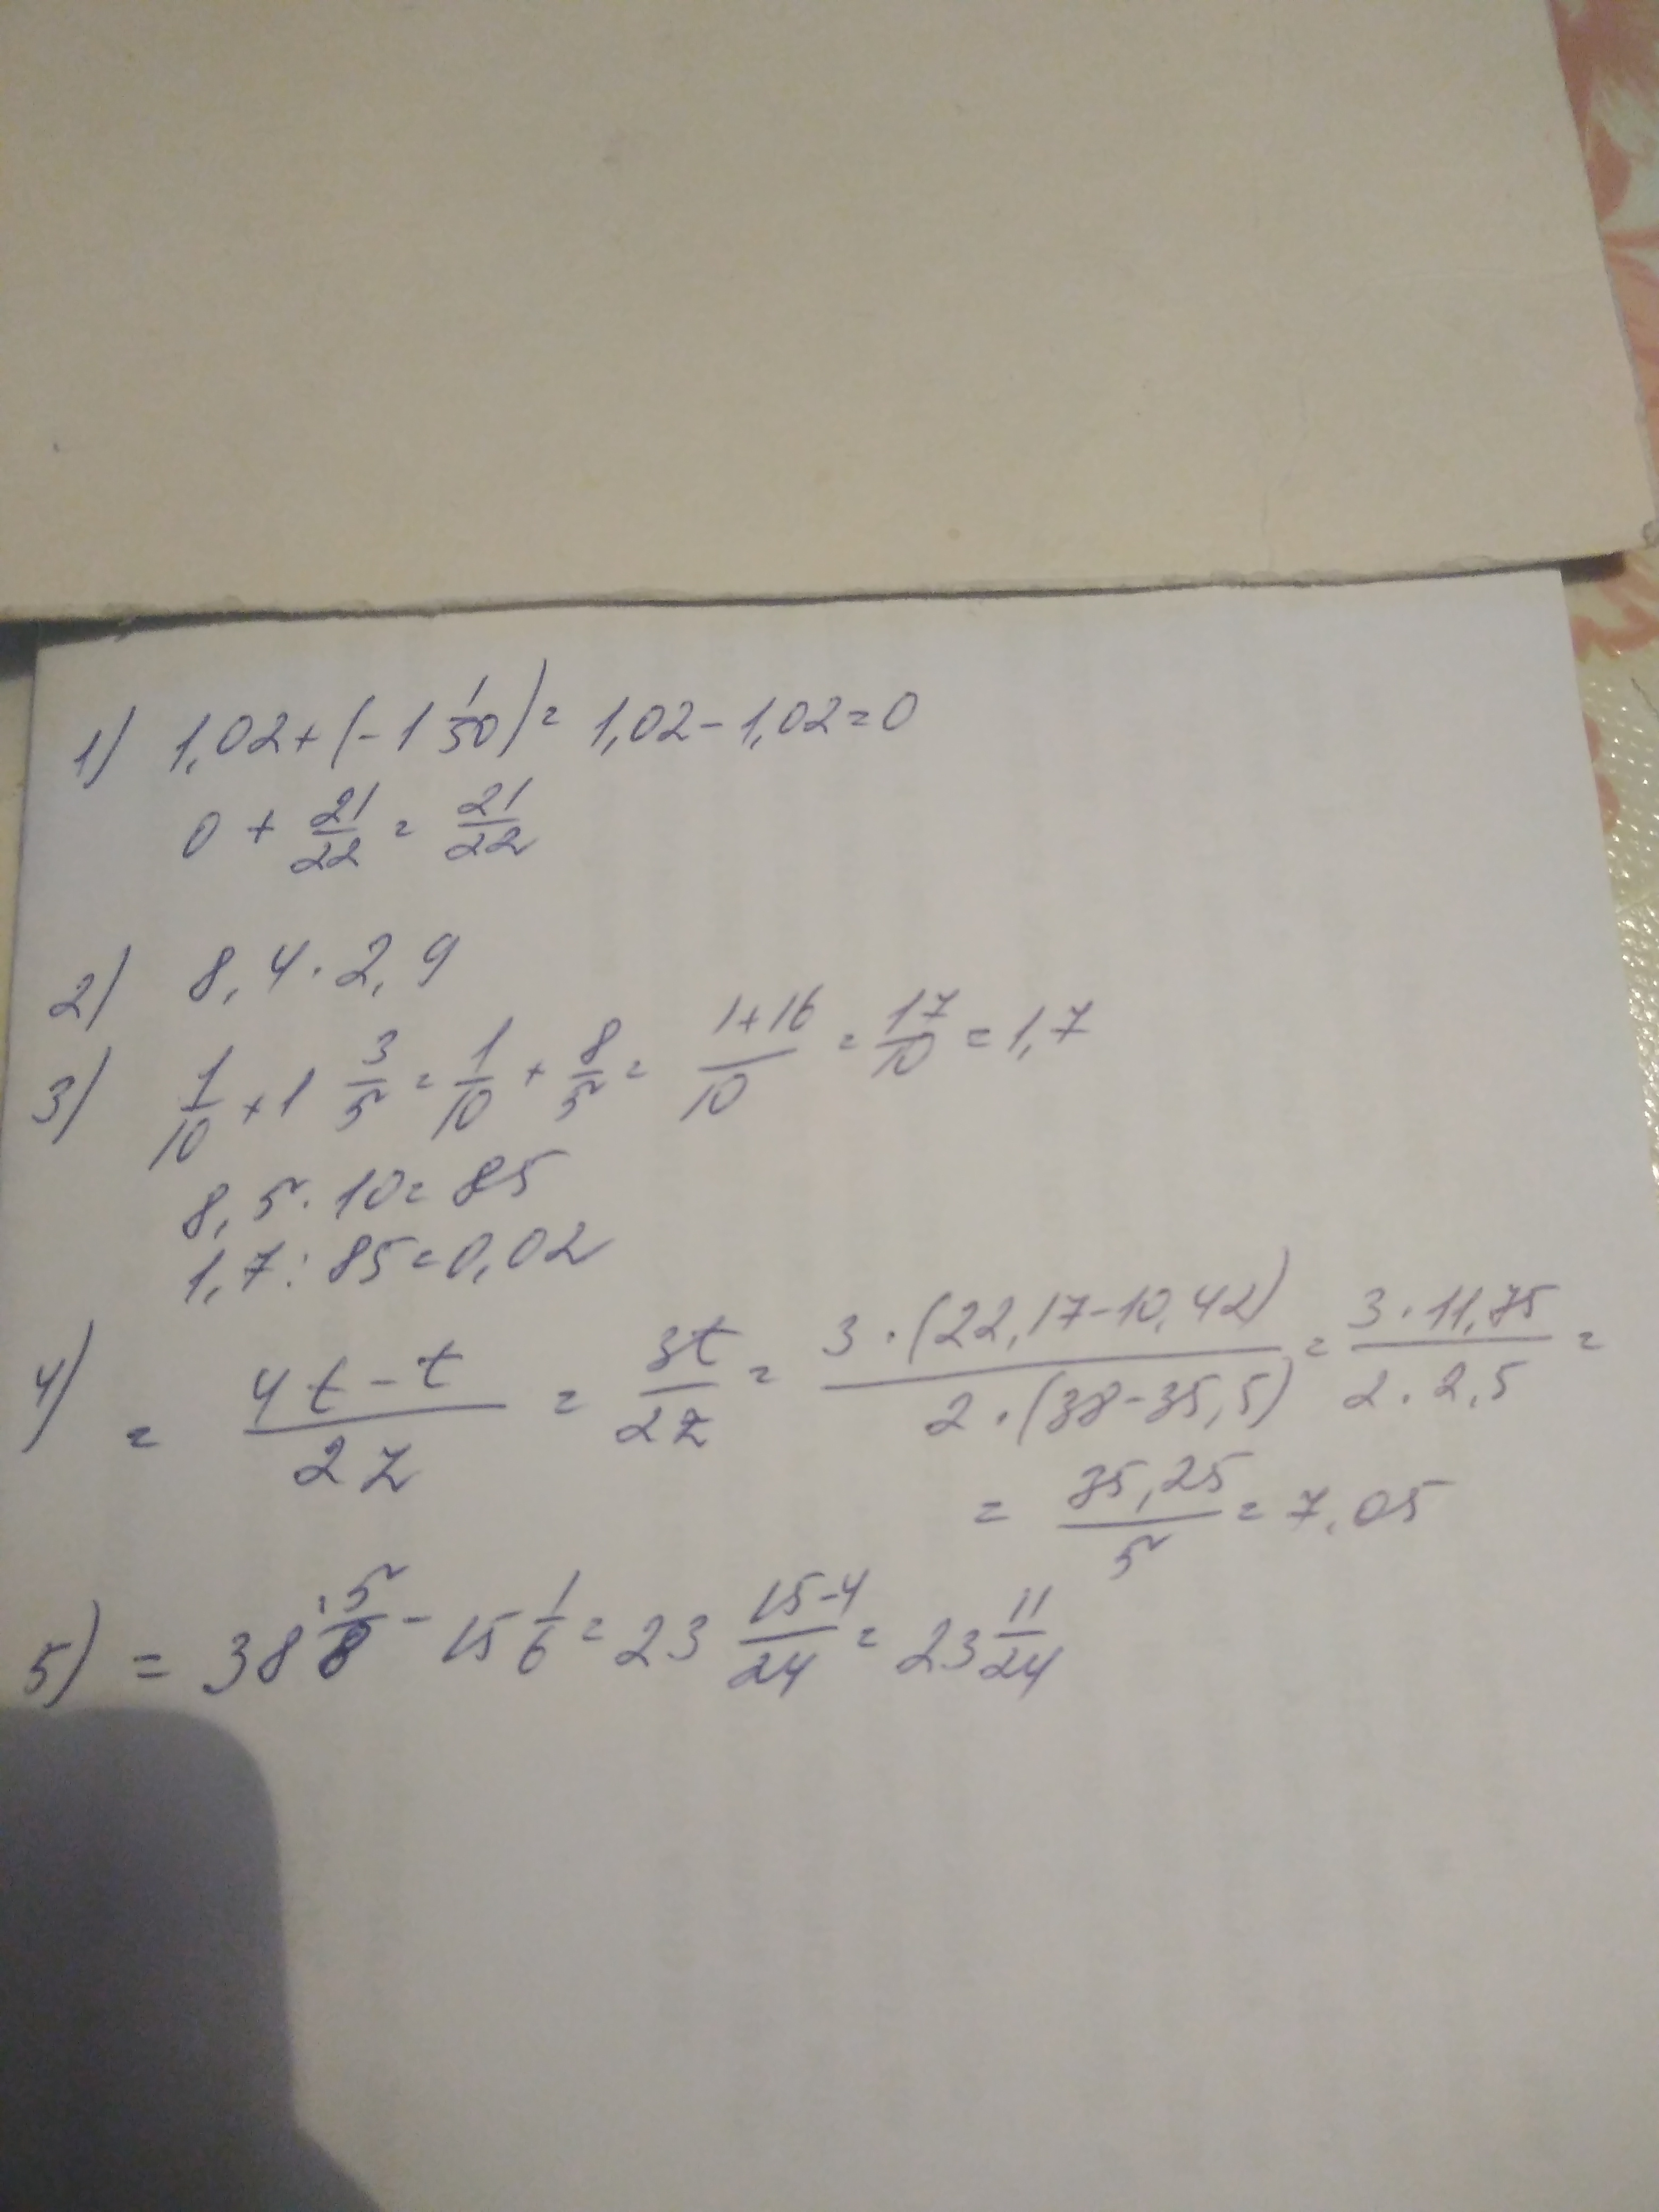 1) 1,02+(-1 1/50)= 1,02-1,02=0
0 + 21/22 = 21/22
2) 8,4·2,9
3) 1/10 +1 3/5 = 1/10 + 8/5 = 1+16/10 = 17/10 = 1,7
8,5·10=85
1,7:85=0,02
4) = 4t-t/2z = 3t/2z = 3·(22,17-10,42)/2·(38-35,5) = 3·11,75/2·2,5 =
= 35,25/5 = 7,05
5) = 38 5/8 - 15 1/6 = 23 15-4/24 = 23 11/24